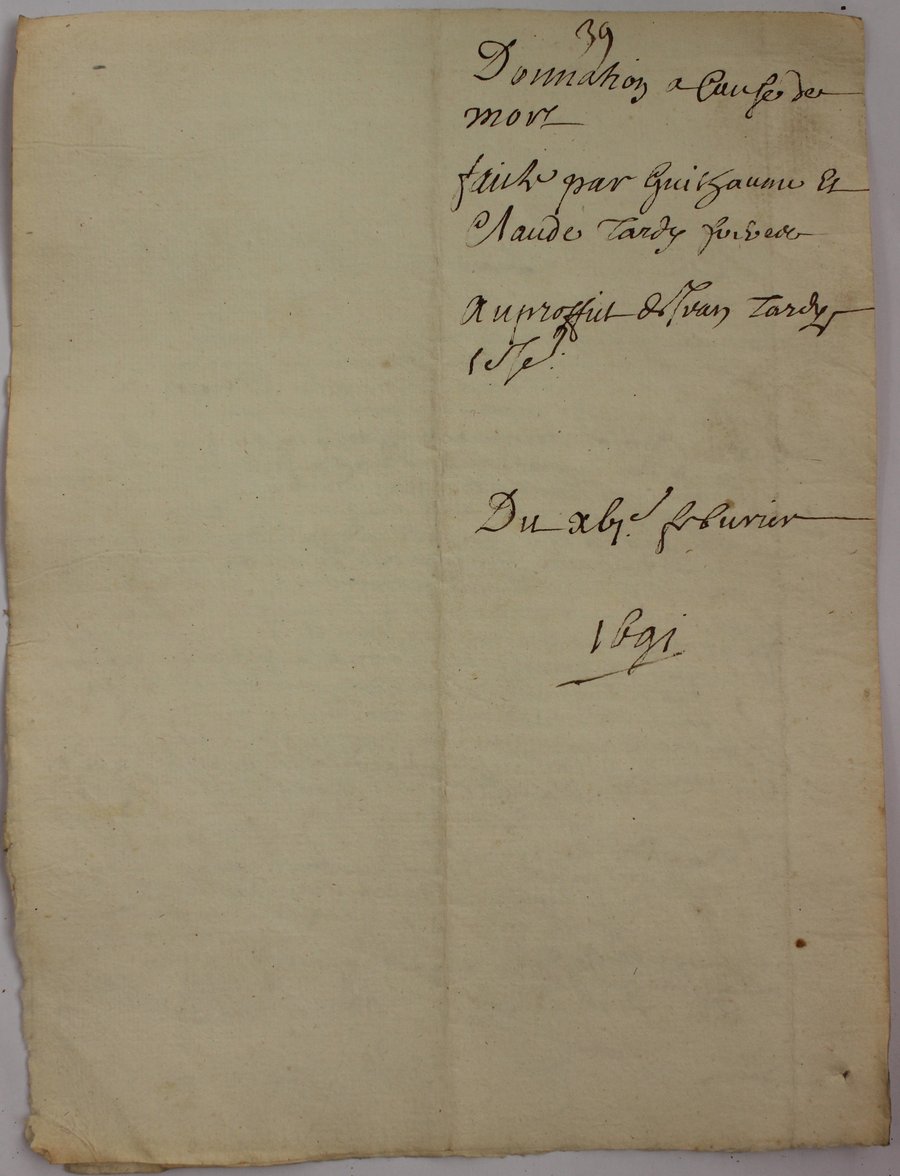 39
Donnation a Cause de
mort
faicte par Guilhaume Et
Claude Tardy freres
Au proffit de Jean Tardy
Du xbj.e febvrier
1691